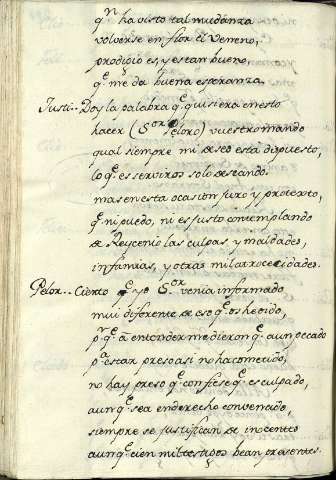 qn ha visto tal mudanza
volverse en flor el Veneno,
prodigio es, y es tan bueno,
qe me da buena esperanza.
Justi.. Doy la palabra qe quisiera en esto
hacer (Sor Peloro) vuestro mando
qual siempre mi deseo está dispuesto,
lo qe es serviros solo deseando.
mas en esta ocasion juro y protexto,
qe ni puedo, ni es justo contemplando
de Leucenio las culpas, y maldades,
infamias, y otras mil atrocecidades.
Pelor.. Cierto qe yo Sor venia informado
mui diferente de eso qe os he oido,
pr qe a entonder me dieron qe aun pecado
pa estar preso asi no ha cometido,
no hay preso qe confiese qe es culpado,
aunqe sea en derecho convencido,
siempre se justifican de inocentes
aunqe cien mil testigos sean presentes.